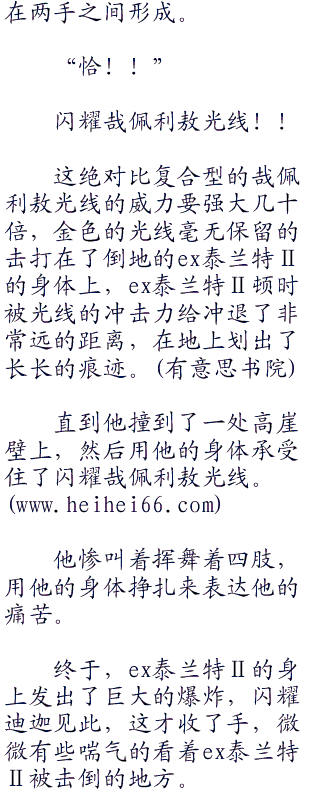 在两手之间形成。
“恰！！”
闪耀哉佩利敖光线！！
这绝对比复合型的哉佩
利敖光线的威力要强大几十
倍，金色的光线毫无保留的
击打在了倒地的ex泰兰特Ⅱ
的身体上，ex泰兰特Ⅱ顿时
被光线的冲击力给冲退了非
常远的距离，在地上划出了
长长的痕迹。(有意思书院)
直到他撞到了一处高崖
壁上，然后用他的身体承受
住了闪耀哉佩利敖光线。
(www.heihei66.com)
他惨叫着挥舞着四肢，
用他的身体挣扎来表达他的
痛苦。
终于，ex泰兰特Ⅱ的身
上发出了巨大的爆炸，闪耀
迪迦见此，这才收了手，微
微有些喘气的看着ex泰兰特
Ⅱ被击倒的地方。